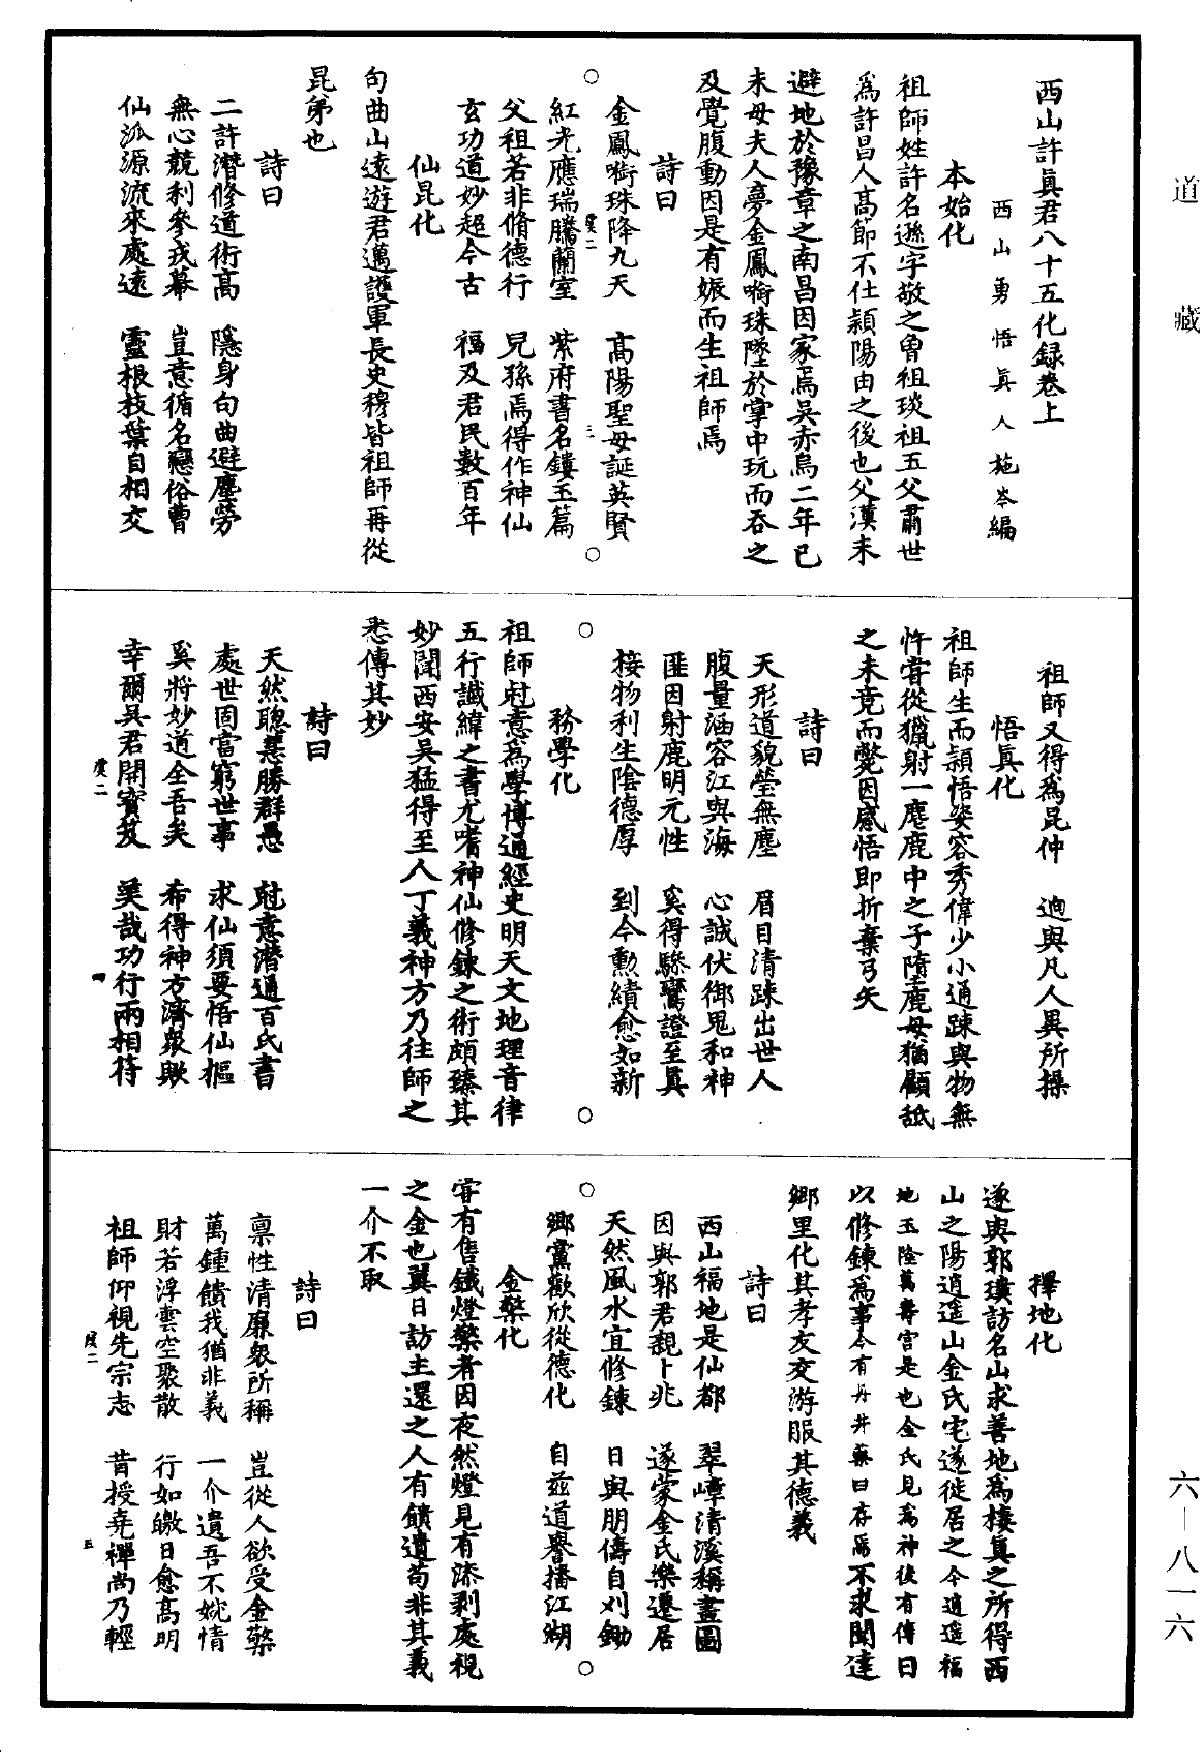 道藏
西山許真君八十五化録卷上
西山勇悟真人施岑編
本始化
祖師姓許名遜字敬之曾祖琰祖五父肅世
為許昌人高節不仕潁陽由之後也父漢末
避地於豫章之南昌因家焉吳赤烏二年已
未母夫人夢金鳳啣珠墜於掌中玩而吞之
及覺腹動因是有娠而生祖師焉
詩曰
金鳳啣珠降九天　高陽聖母誕英賢
紅光應瑞騰闤室　紫府書名鏤玉篇
父祖若非脩德行　兒孫焉得作神仙
玄功道妙超今古　福及君民數百年
仙昆化
句曲山遠遊君邁護軍長史穆皆祖師再從
昆弟也
詩曰
二許潛修道術高　隱身句曲避塵勞
無心競利參戎幕　豈意循名戀俗曹
仙派源流來處遠　靈根枝葉自相交
祖師又得為昆仲　逈與凡人異所操
悟真化
祖師生而穎悟姿容秀偉少小通踈與物無
忤嘗從獵射一麀鹿中之子墮鹿母猶顧舐
之未竟而斃因感悟即折棄弓矢
詩曰
天形道貌瑩無塵　眉目清踈出世人
腹量涵容江與海　心誠伏御鬼和神
匪因射鹿明元性　奚得驂鸞證至真
接物利生陰德厚　到今勳績愈如新
務學化
祖師尅意為學博通經史明天文地理音律
五行讖緯之書尤嗜神仙修鍊之術頗臻其
妙聞西安吳猛得至人丁義神方乃往師之
悉傳其妙
詩曰
天然聰慧勝群愚　尅意潛通百氏書
處世固當窮世事　求仙須要悟仙樞
奚將妙道全吾矣　希得神方濟衆歟
幸爾吳君開寳笈　美哉功行兩相符
擇地化
遂與郭璞訪名山求善地為棲真之所得西
山之陽逍遥山金氏宅遂徙居之今逍遥福
地玉隆萬壽宮是也金氏見為神後有傳曰
以修鍊為事今有丹井藥臼存焉不求聞達
鄉里化其孝友交游服其德義
詩曰
西山福地是仙都　翠嶂清溪稱畫圖
因與郭君親卜兆　遂蒙金氏樂遷居
天然風水宜修鍊　日與朋儔自刈鋤
鄉黨歡欣從德化　自茲道譽播江湖
金檠化
甞有售鐵燈檠者因夜然燈見有漆剥處視
之金也翼日訪主還之人有饋遺苟非其義
一介不取
詩曰
禀性清廉衆所稱　豈從人欲受金檠
萬鍾饋我猶非義　一介遺吾不娧情
財若浮雲空聚散　行如皦日愈高明
祖師仰視先宗志　昔授堯禪尚乃輕
虞二
三
虞二
四
虞二
五
六—八一六